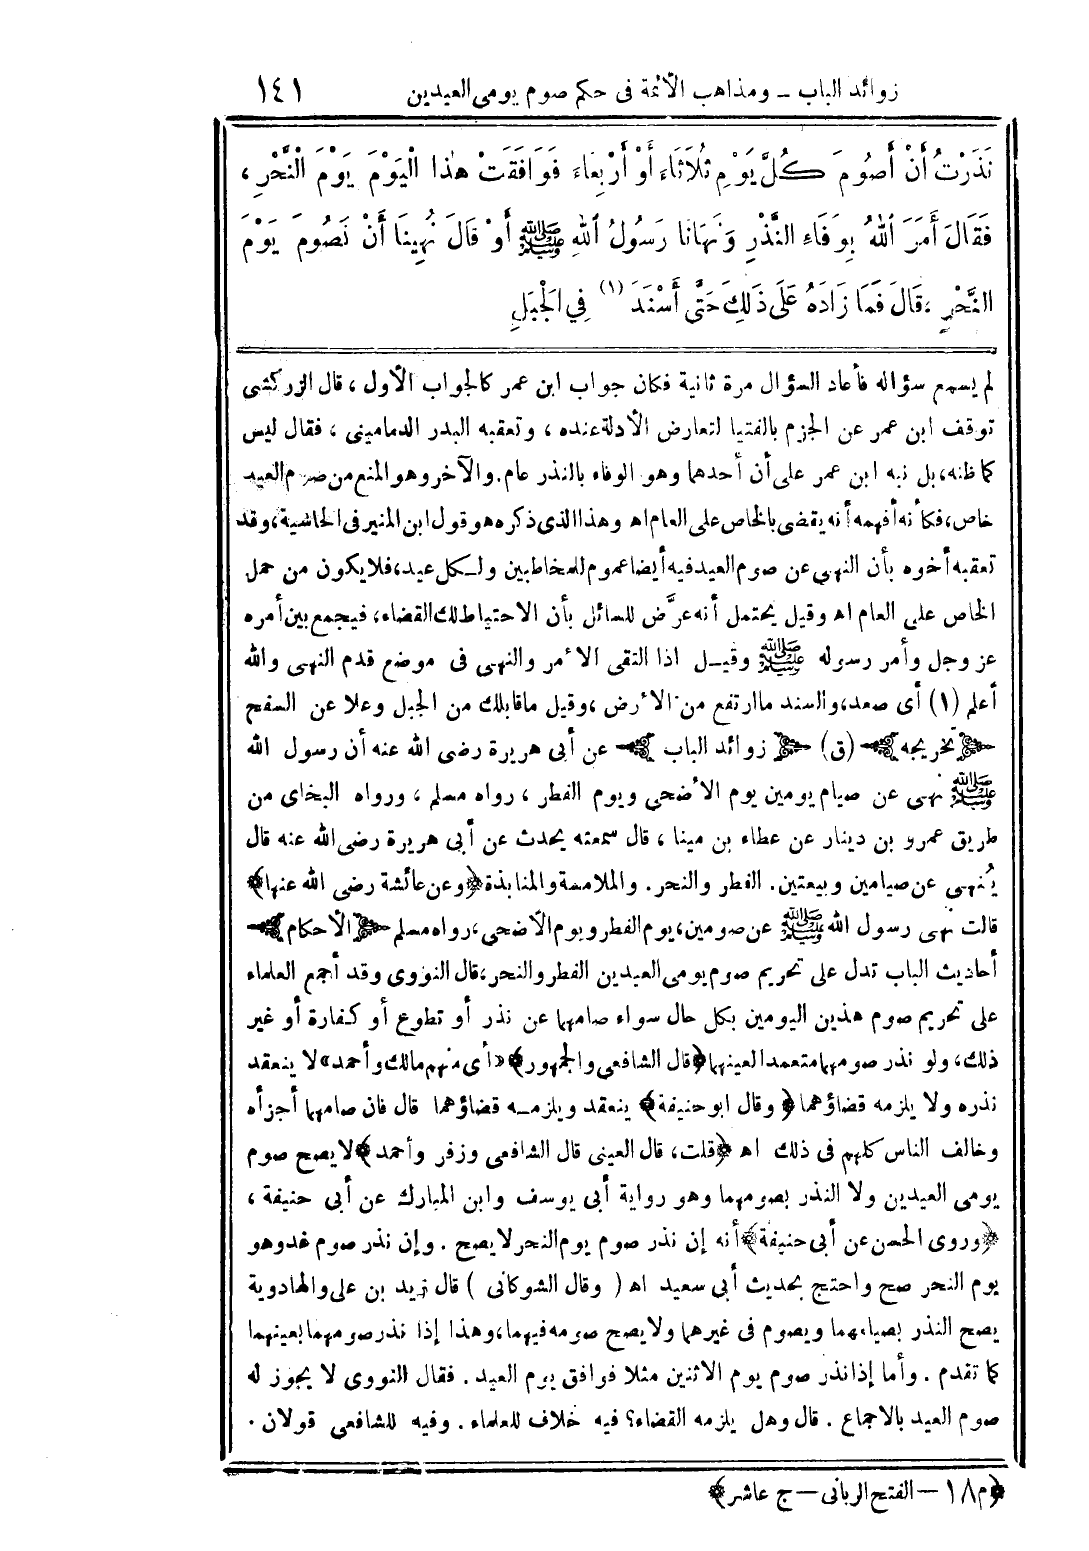 زوائد الباب ــ ومذاهب الأئمة فى حكم صوم يومى العيدين ١٤١
نَذَرْتُ أَنْ أَصُومَ كُلَّ يَوْمِ ثُلَاثَاءَ أَوْ أَرْبِعَاءَ فَوَافَقَتْ هٰذَا الْيَوْمَ يَوْمَ النَّحْرِ ،
فَقَالَ أَمَرَ اللهُ بِوَفَاءِ النَّذْرِ وَنَهَانَا رَسُولُ اللهِ ﷺ أَوْ قَالَ نُهِينَا أَنْ نَصُومَ يَوْمَ
النَّحْرِ ، قَالَ فَمَا زَادَهُ عَلَى ذَلِكَ حَتَّى أَسْنَدَ (١) فِي الْجَبَلِ
لم يسمع سؤاله فأعاد السؤال مرة ثانية فكان جواب ابن عمر كالجواب الأول ، قال الزركشى
توقف ابن عمر عن الجزم بالفتيا لتعارض الأدلة عنده ، وتعقبه البدر الدمامينى ، فقال ليس
كما ظنه، بل نبه ابن عمر على أن أحدهما وهو الوفاء بالنذر عام. والآخر وهو المنع من صوم العيد
خاص، فكأنه أفهمه أنه يقضى بالخاص على العام اهـ وهذا الذى ذكره هو قول ابن المنير فى الحاشية، وقد
تعقبه أخوه بأن النهى عن صوم العيد فيه أيضا عموم للمخاطبين ولكل عيد، فلا يكون من حمل
الخاص على العام اهـ وقيل يحتمل أنه عرَّض للسائل بأن الاحتياط لك القضاء، فيجمع بين أمره
عز وجل وأمر رسوله ﷺ وقيل اذا التقى الأمر والنهى فى موضع قدم النهى والله
أعلم (١) أى صعد، والسند ما ارتفع من الأرض ، وقيل ما قابلك من الجبل وعلا عن السفح
﴿تخريجه﴾ (ق) ﴿زوائد الباب﴾ عن أبى هريرة رضى الله عنه أن رسول الله
ﷺ نهى عن صيام يومين يوم الأضحى ويوم الفطر ، رواه مسلم ، ورواه البخاى من
طريق عمرو بن دينار عن عطاء بن مينا ، قال سمعته يحدث عن أبى هريرة رضى الله عنه قال
يُنهى عن صيامين وبيعتين. الفطر والنحر. والملامسة والمنابذة ﴿وعن عائشة رضى الله عنها﴾
قالت نهى رسول الله ﷺ عن صومين، يوم الفطر ويوم الأضحى، رواه مسلم ﴿الأحكام﴾
أحاديث الباب تدل على تحريم صوم يومى العيدين الفطر والنحر، قال النووى وقد أجمع العلماء
على تحريم صوم هذين اليومين بكل حال سواء صامهما عن نذر أو تطوع أو كفارة أو غير
ذلك، ولو نذر صومهما متعمدا لعينهما ﴿قال الشافعى والجمهور﴾ «أى منهم مالك وأحمد» لا ينعقد
نذره ولا يلزمه قضاؤهما ﴿ وقال ابو حنيفة﴾ ينعقد ويلزمه قضاؤهما قال فان صامهما أجزأه
وخالف الناس كلهم فى ذلك اهـ ﴿قلت، قال العينى قال الشافعى وزفر وأحمد﴾ لا يصح صوم
يومى العيدين ولا النذر بصومهما وهو رواية أبى يوسف وابن المبارك عن أبى حنيفة ،
﴿وروى الحسن عن أبى حنيفة﴾ أنه إن نذر صوم يوم النحر لا يصح . وإن نذر صوم غد وهو
يوم النحر صح واحتج بحديث أبى سعيد اهـ ( وقال الشوكانى ) قال زيد بن على والهادوية
يصح النذر بصيامهما ويصوم فى غيرهما ولا يصح صومه فيهما، وهذا إذا نذر صومهما بعينهما
كما تقدم . وأما إذا نذر صوم يوم الاثنين مثلا فوافق يوم العيد . فقال النووى لا يجوز له
صوم العيد بالاجماع . قال وهل يلزمه القضاء؟ فيه خلاف للعلماء . وفيه للشافعى قولان .
﴿م ١٨ – الفتح الربانى – ج عاشر﴾